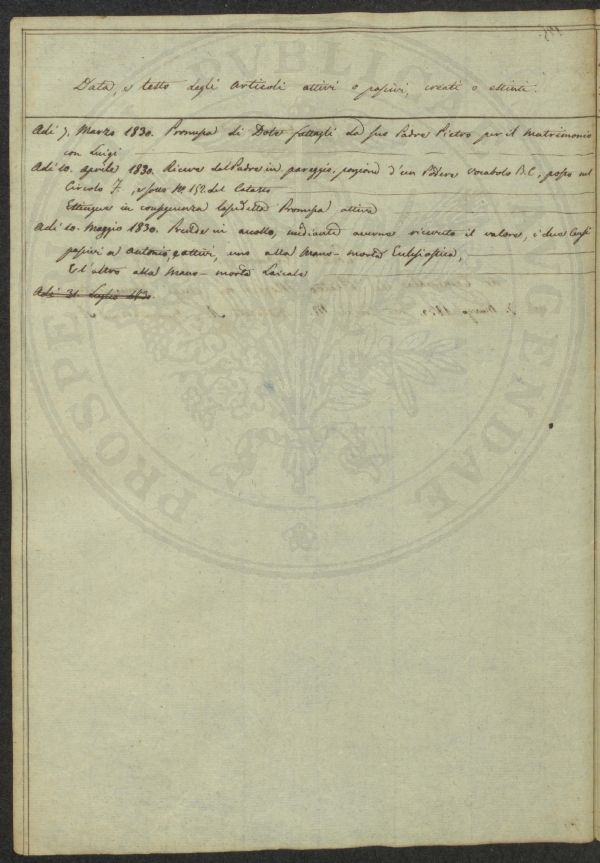 Data, e testo degli articoli attivi o passivi, creati o estinti.
Adi 7. Marzo 1830. Promessa di Dote fattagli da suo Padre Pietro per il matrimonio
con Luigi
Adi 10. aprile 1830. Riceve dal Padre in pareggio, porzione d'un Podere vocabolo B. C., posto nel
Circolo F., e sotto No 152. del Catasto
Estingue in conseguenza la suddetta Promessa attiva
Adi 10. Maggio 1830. Prende in accollo, mediante averne ricevuto il valore, i due Censi
passivi di Antonio, e attivi, uno alla Mano-morta Eclesiastica,
E l'altro alla Mano-morta Laicale
Adi 31. Luglio 1830.
PUBLICA
PROSPE
ENDAE